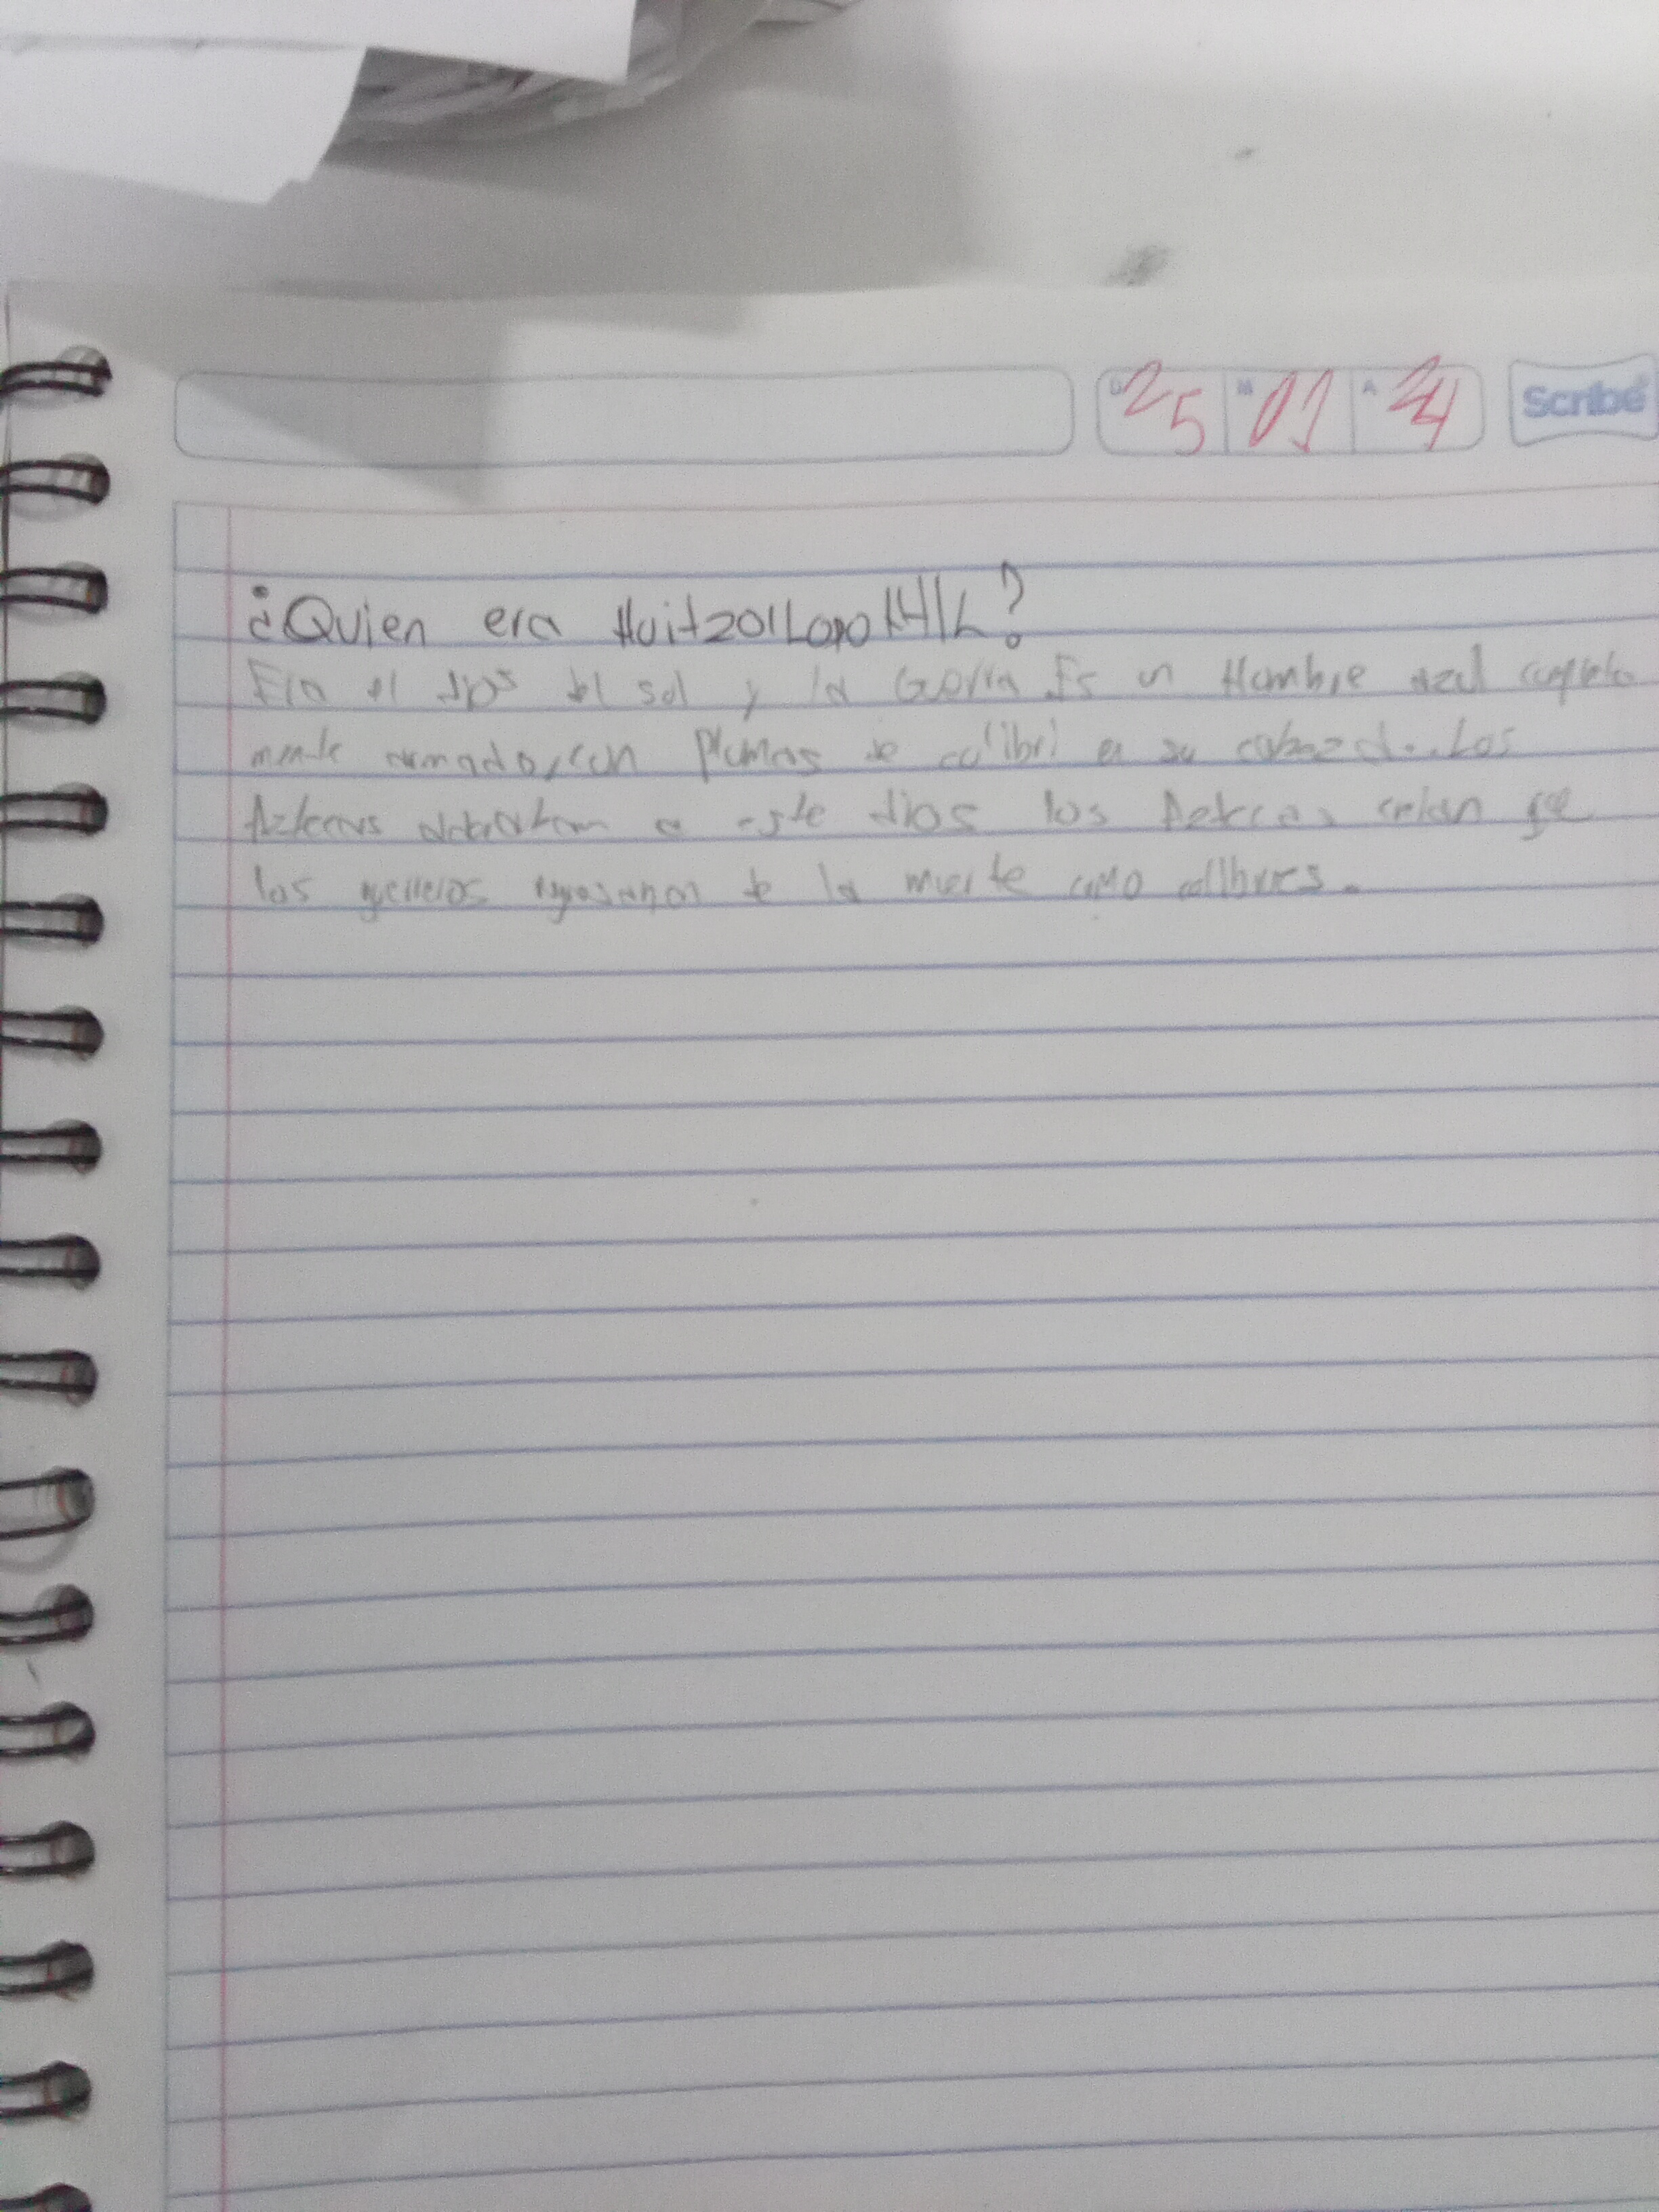 D 25 M 01 A 24 Scribe
¿Quien era Huitzoilopohtli?
Era el dios del sol y la Guerra Es un Hombre azul completa
mente armado, con Plumas de colibri en su cabeza. Los
Aztecas adoraban a este dios los Aztecas creian que
los guerreros regresaban de la muerte como colibries.